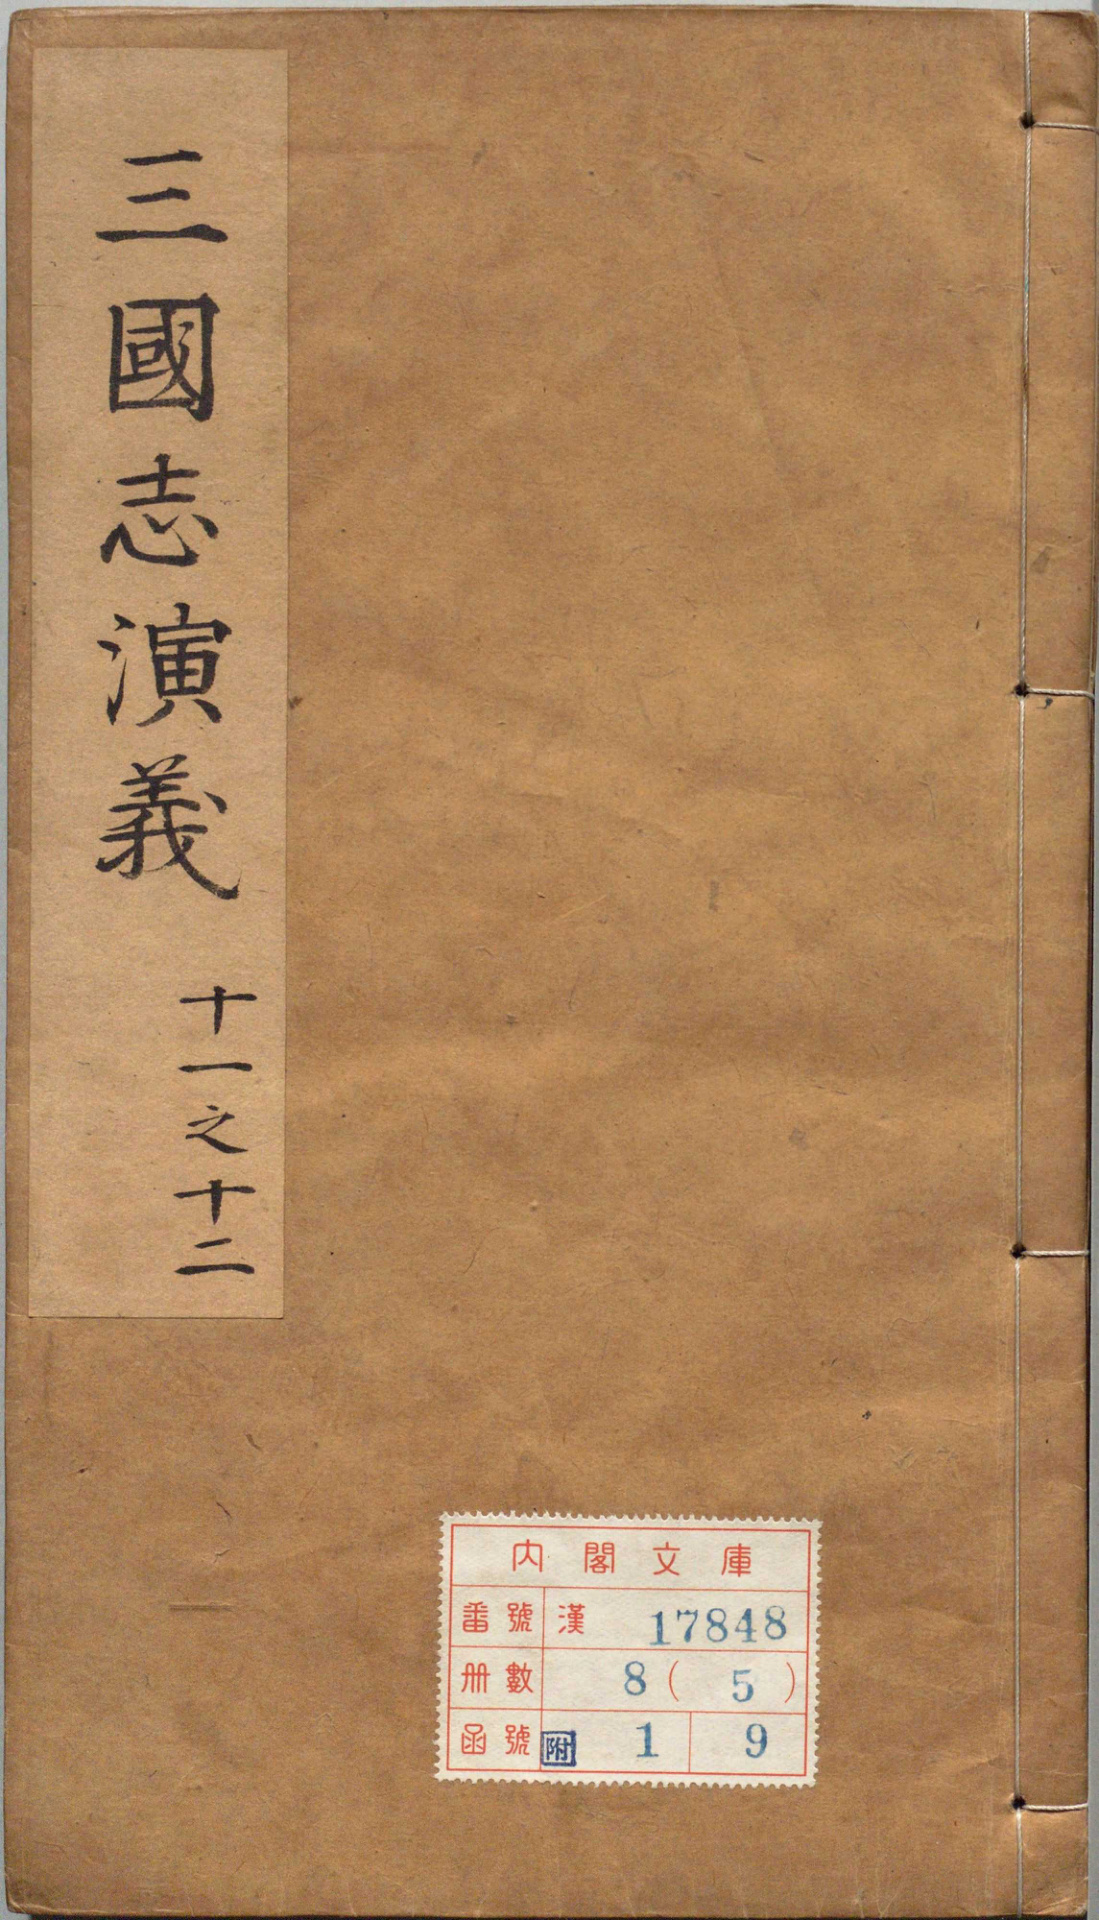 三國志演義
十一之十二
内閣文庫
番號 漢 17848
冊數 8(5)
函號 附 1 9